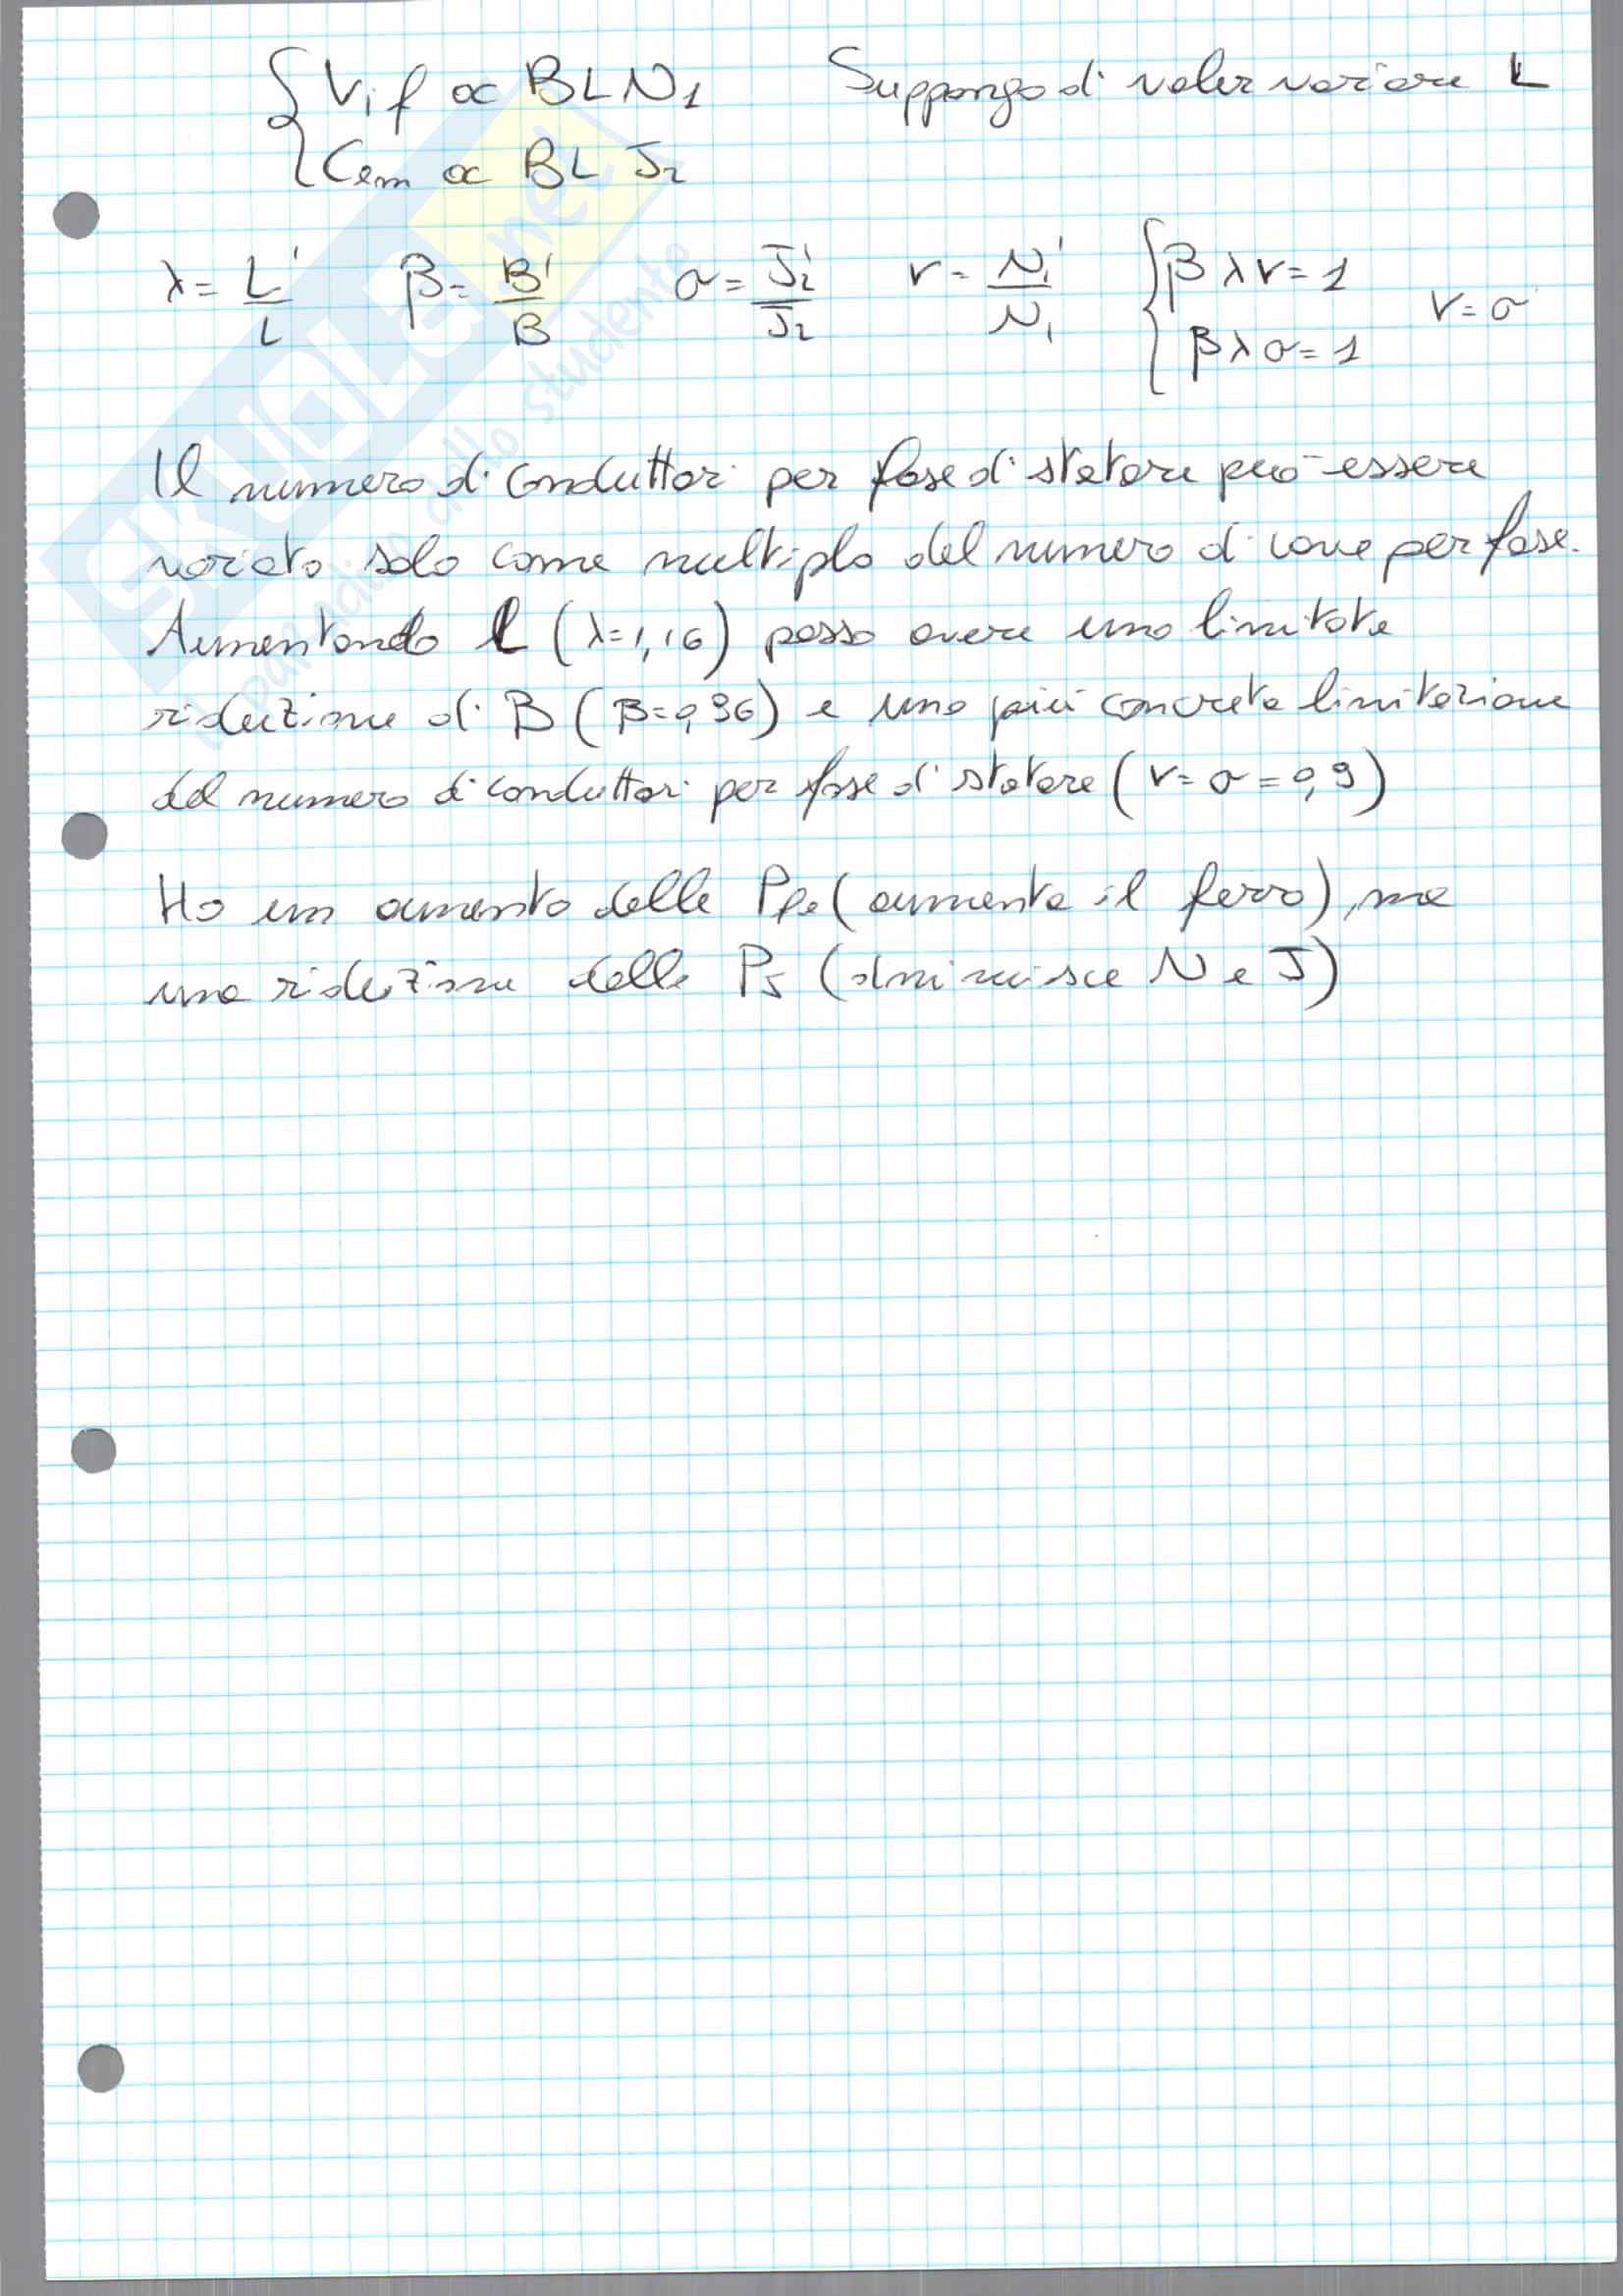 { V₁f ∝ BLN₁ Suppongo di voler variare L
{ Cem ∝ BL J₂
λ = L'/L β = B'/B σ = J₂'/J₂ ν = N₁'/N₁ { βλν = 1 ν = σ
{ βλσ = 1
Il numero di conduttori per fase di statore può essere
variato solo come multiplo del numero di cave per fase.
Aumentando L (λ=1,16) posso avere una limitata
riduzione di B (β=0,96) e una più concreta limitazione
del numero di conduttori per fase di statore (ν = σ = 0,9)
Ho un aumento delle Pfe (aumenta il ferro), ma
una riduzione delle PJ (diminuisce N e J)
SKUOLA.net
il paradiso dello studente